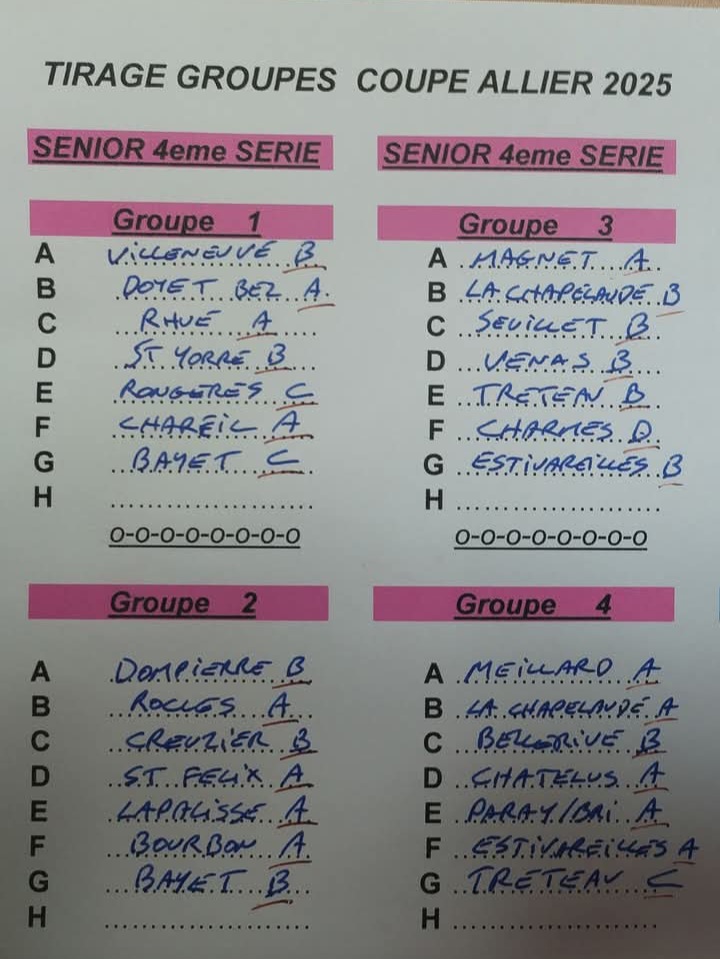 TIRAGE GROUPES COUPE ALLIER 2025
SENIOR 4eme SERIE
Groupe 1
A VILLENEUVE B
B DOYET BEZ A
C RHUE A
D ST YORRE B
E RONGERES C
F CHAREIL A
G BAYET C
H
O-O-O-O-O-O-O-O
Groupe 2
A DOMPIERRE B
B ROCLES A
C CREUZIER B
D ST FELIX A
E LAPALISSE A
F BOURBON A
G BAYET B
H
SENIOR 4eme SERIE
Groupe 3
A MAGNET A
B LA CHAPELAUDE B
C SEUILLET B
D VENAS B
E TRETEAU B
F CHARMES D
G ESTIVAREILLES B
H
O-O-O-O-O-O-O-O
Groupe 4
A MEILLARD A
B LA CHAPELAUDE A
C BELLERIVE B
D CHATELUS A
E PARAY/BRI A
F ESTIVAREILLES A
G TRETEAU C
H